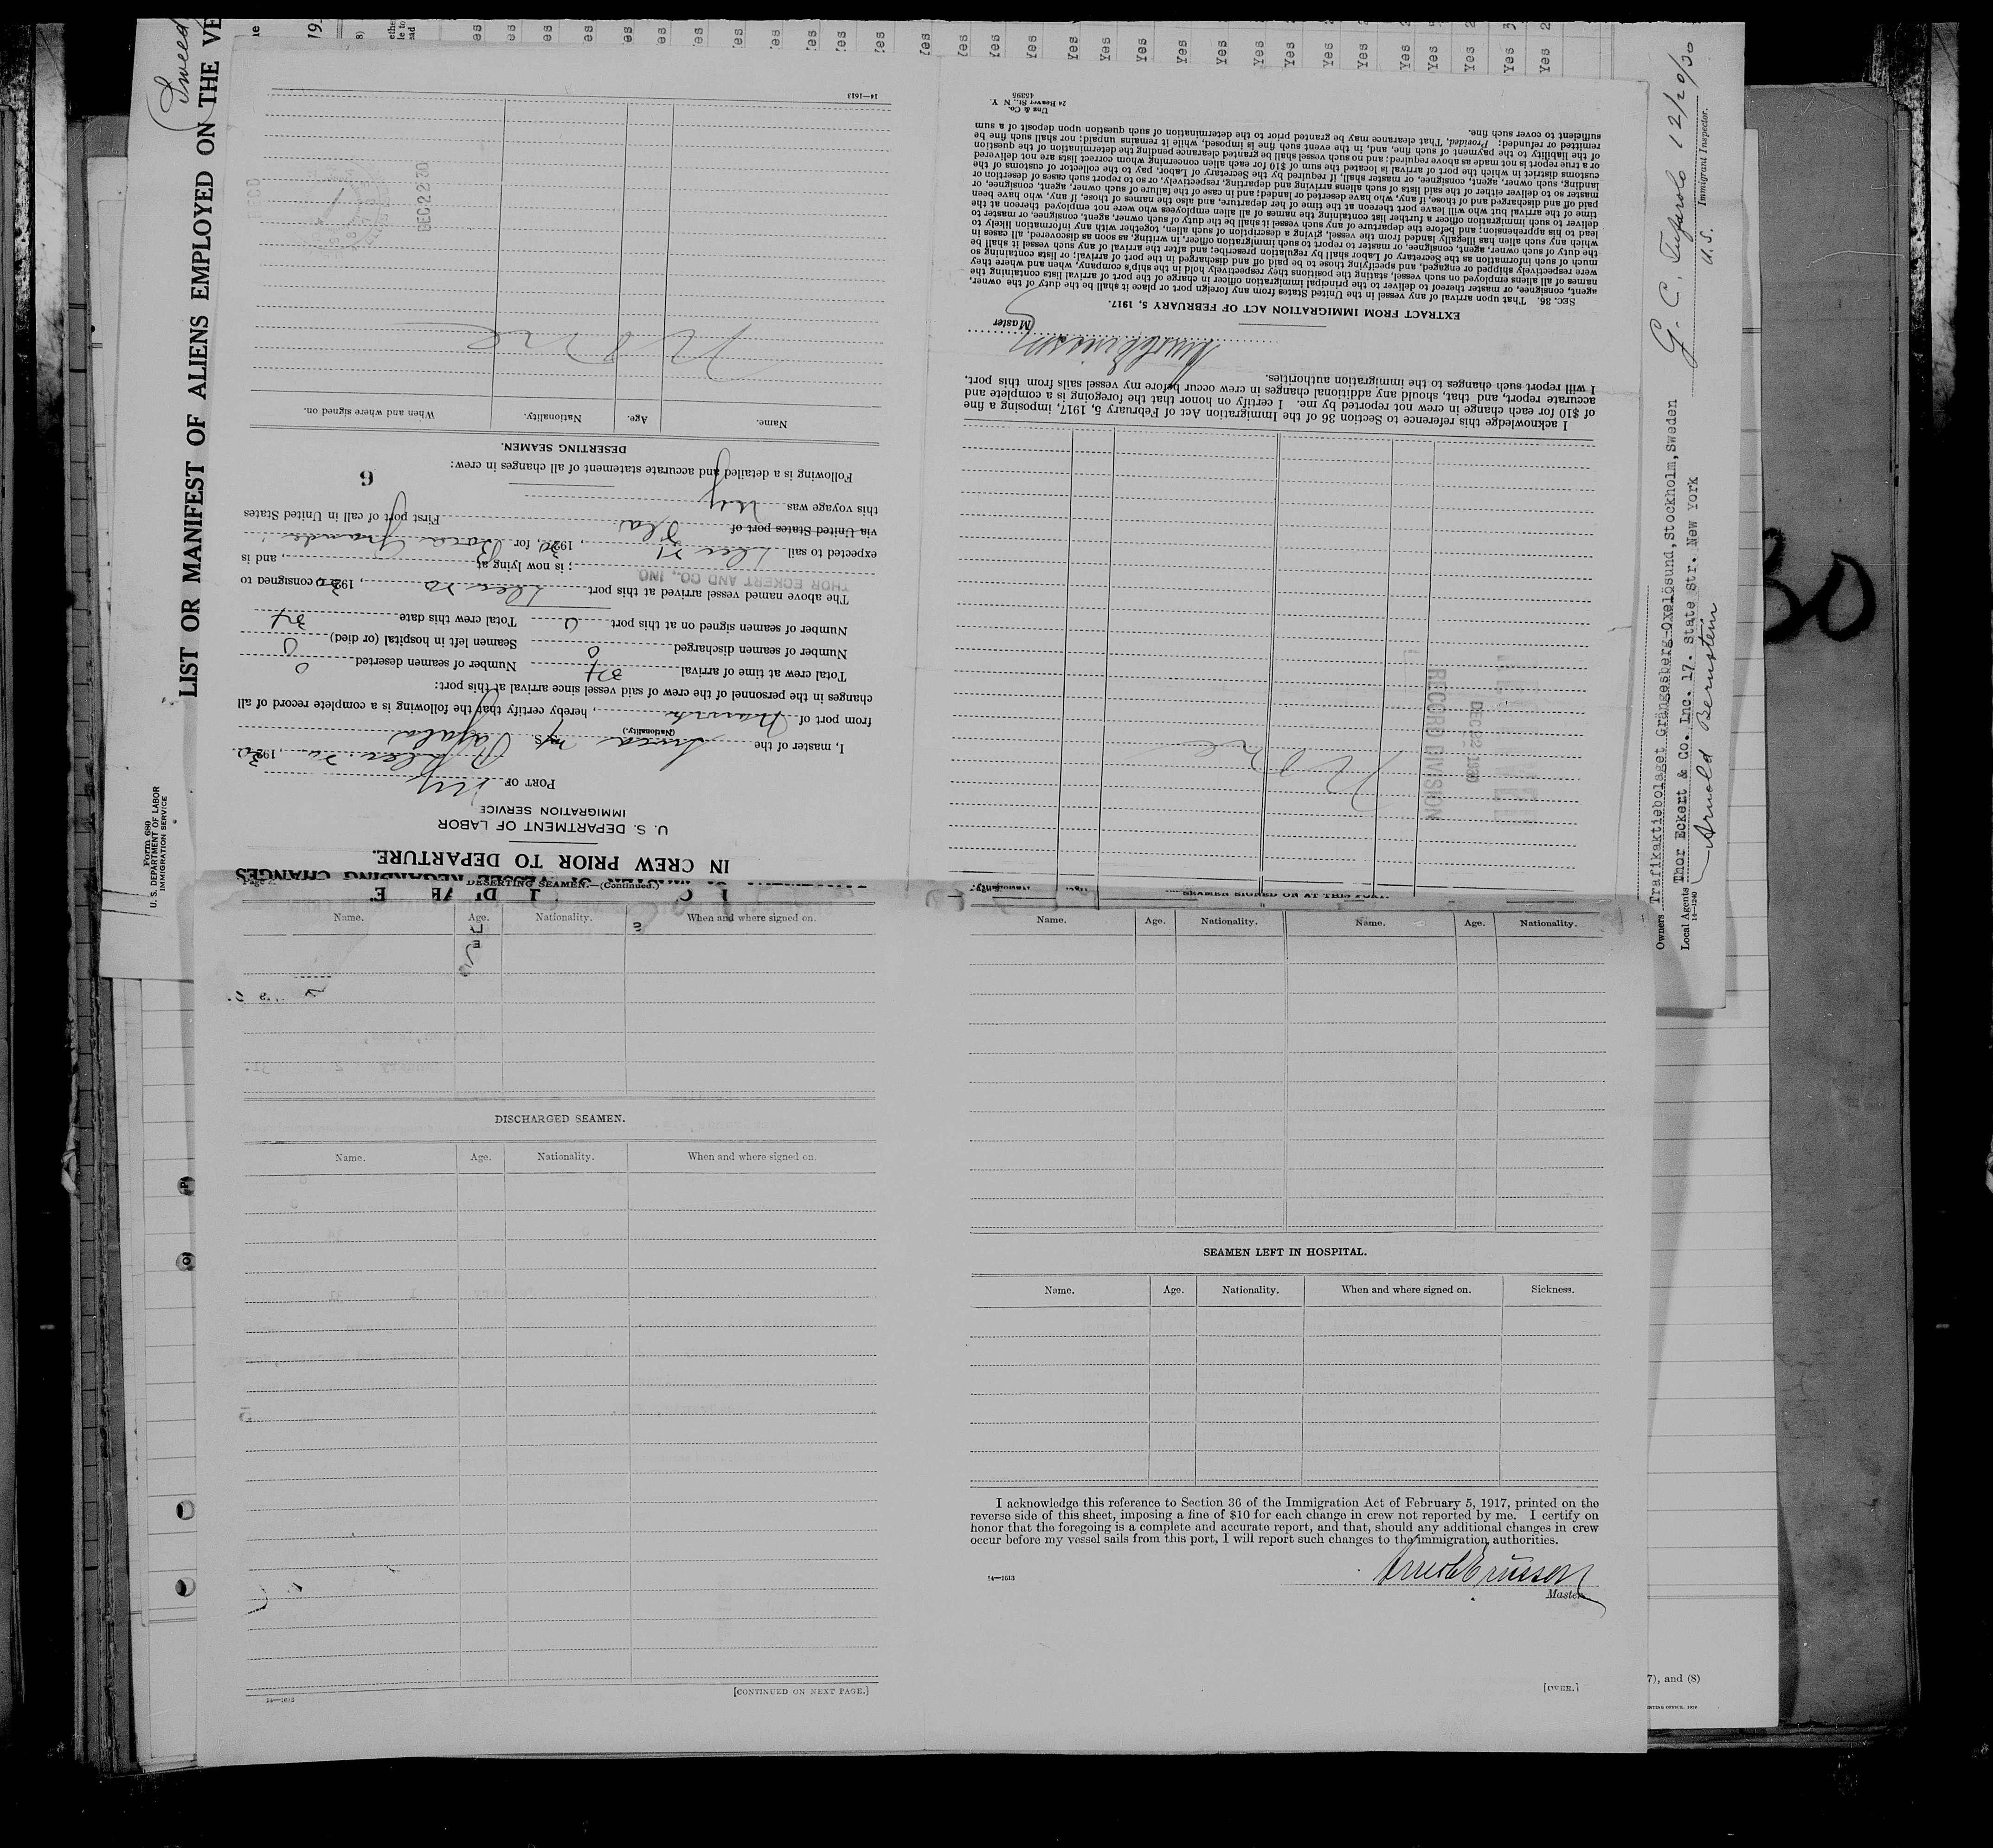 LIST OR MANIFEST OF ALIENS EMPLOYED ON THE VE
Form 680
U. S. DEPARTMENT OF LABOR
IMMIGRATION SERVICE
IN CREW PRIOR TO DEPARTURE.
U. S. DEPARTMENT OF LABOR
IMMIGRATION SERVICE
PORT OF NY
I, master of the
(Nationality.)
from port of Narvik, hereby certify that the following is a complete record of all
changes in the personnel of the crew of said vessel since arrival at this port:
Total crew at time of arrival 37 Number of seamen deserted 0
Number of seamen discharged 0 Seamen left in hospital (or died) 0
Number of seamen signed on at this port 0 Total crew this date 37
The above named vessel arrived at this port Dec 20, 1930 consigned to
THOR ECKERT AND CO., INC.
; is now lying at, and is
expected to sail Dec 21, 1930, for Boca Grande,
via United States port of Fla. First port of call in United States
this voyage was NY
Following is a detailed and accurate statement of all changes in crew:
6
DESERTING SEAMEN.
Name. Age. Nationality. When and where signed on.
None
DEC 22 '30
REC'D
14—1613
SEAMEN SIGNED ON AT THIS PORT.
None
RECEIVED
DEC 22 1930
RECORD DIVISION
I acknowledge this reference to Section 36 of the Immigration Act of February 5, 1917, imposing a fine
of $10 for each change in crew not reported by me. I certify on honor that the foregoing is a complete and
accurate report, and that, should any additional changes in crew occur before my vessel sails from this port,
I will report such changes to the immigration authorities.
Master
EXTRACT FROM IMMIGRATION ACT OF FEBRUARY 5, 1917.
SEC. 36. That upon arrival of any vessel in the United States from any foreign port or place it shall be the duty of the owner,
agent, consignee, or master thereof to deliver to the principal immigration officer in charge of the port of arrival lists containing the
names of all aliens employed on such vessel, stating the positions they respectively hold in the ship's company, when and where they
were respectively shipped or engaged, and specifying those to be paid off and discharged in the port of arrival; or lists containing so
much of such information as the Secretary of Labor shall by regulation prescribe; and after the arrival of any such vessel it shall be
the duty of such owner, agent, consignee, or master to report to such immigration officer, in writing, as soon as discovered, all cases in
which any such alien has illegally landed from the vessel, giving a description of such alien, together with any information likely to
lead to his apprehension; and before the departure of any such vessel it shall be the duty of such owner, agent, consignee, or master to
deliver to such immigration officer a further list containing the names of all alien employees who were not employed thereon at the
time of the arrival but who will leave port thereon at the time of her departure, and also the names of those, if any, who have been
paid off and discharged and of those, if any, who have deserted or landed; and in case of the failure of such owner, agent, consignee, or
master so to deliver either of the said lists of such aliens arriving and departing, respectively, or so to report such cases of desertion or
landing, such owner, agent, consignee, or master, shall, if required by the Secretary of Labor, pay to the collector of customs of the
customs district in which the port of arrival is located the sum of $10 for each alien concerning whom correct lists are not delivered
or a true report is not made as above required; and no such vessel shall be granted clearance pending the determination of the question
of the liability to the payment of such fine, and, in the event such fine is imposed, while it remains unpaid; nor shall such fine be
remitted or refunded; Provided, That clearance may be granted prior to the determination of such question upon deposit of a sum
sufficient to cover such fine.
Unz & Co.
24 Beaver St., N. Y.
45395
DESERTING SEAMEN.—(Continued.)
Name. Age. Nationality. When and where signed on.
DISCHARGED SEAMEN.
Name. Age. Nationality. When and where signed on.
14—1613
[CONTINUED ON NEXT PAGE.]
Name. Age. Nationality. Name. Age. Nationality.
SEAMEN LEFT IN HOSPITAL.
Name. Age. Nationality. When and where signed on. Sickness.
I acknowledge this reference to Section 36 of the Immigration Act of February 5, 1917, printed on the
reverse side of this sheet, imposing a fine of $10 for each change in crew not reported by me. I certify on
honor that the foregoing is a complete and accurate report, and that, should any additional changes in crew
occur before my vessel sails from this port, I will report such changes to the immigration authorities.
14—1613
Master
[OVER.]
12/20/30
U.S. Immigrant Inspector.
Owners Trafikaktiebolaget Grängesberg-Oxelösund, Stockholm, Sweden
Local Agents Thor Eckert & Co. Inc. 17. State Str. New York
14—1240
Arnold Bernstein
7), and (8)
30